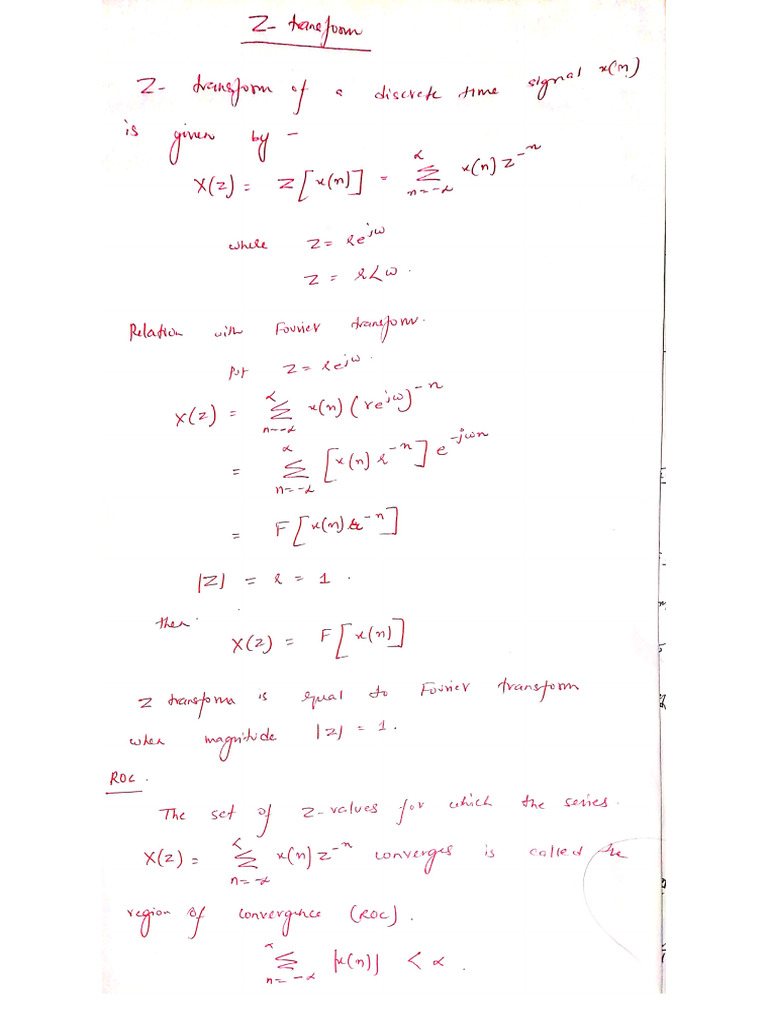 Z- transform
Z- transform of a discrete time signal x(n)
is given by -
X(z) = Z[x(n)] = ∑_{n=-∝}^{∝} x(n) z^{-n}
where z = re^{jω}
z = r∠ω.
Relation with Fourier transform.
put z = re^{jω}.
X(z) = ∑_{n=-∝}^{∝} x(n) (re^{jω})^{-n}
= ∑_{n=-∝}^{∝} [x(n) r^{-n}] e^{-jωn}
= F[x(n) r^{-n}]
|Z| = r = 1.
then.
X(z) = F[x(n)]
Z transform is equal to Fourier transform
when magnitude |z| = 1.
ROC.
The set of z-values for which the series.
X(z) = ∑_{n=-∝}^{∝} x(n) z^{-n} converges is called the
region of convergence (ROC).
∑_{n=-∝}^{∝} |x(n)| < ∝.